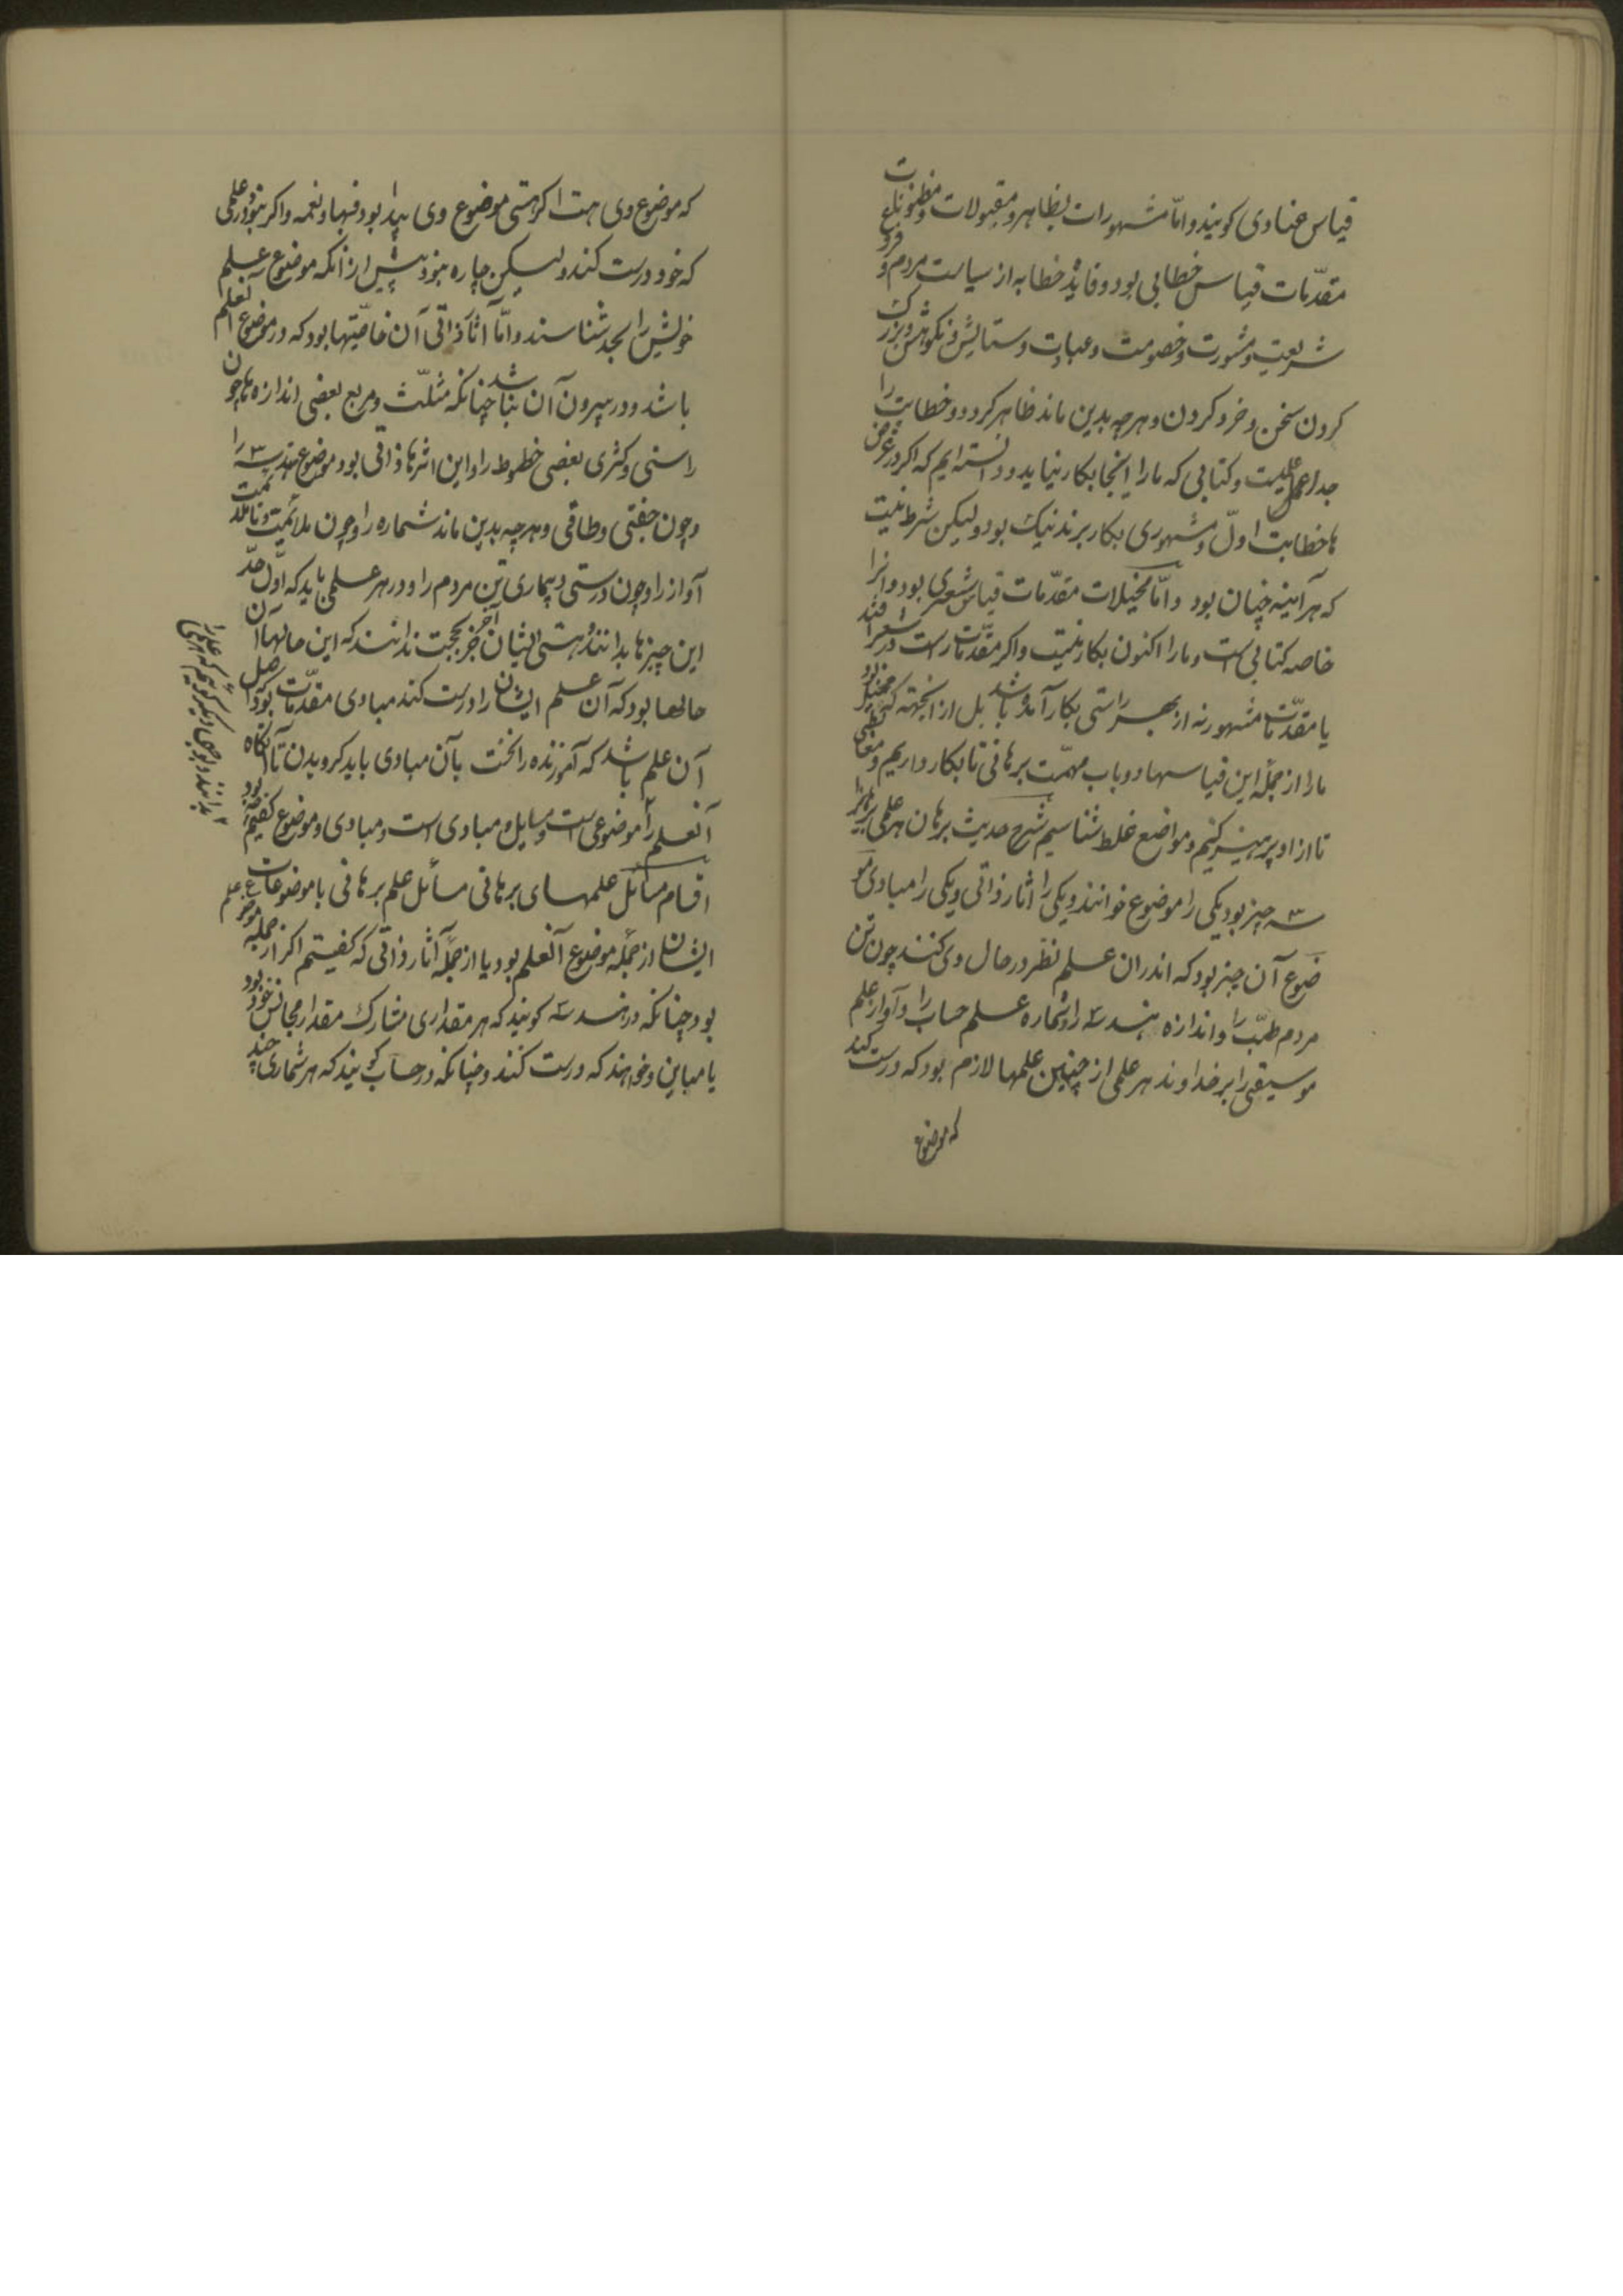 قیاس عنادی کویند و امّا مشهورات بظاهر و مقبولات و مظنونات
مقدّمات قیاس خطابی بود و فایدهٔ خطابه از سیاست مردم و فروع
شریعت و مشورت و خصومت و عبادت و ستایش و نکوهش و بزرک
کردن سخن و خرد کردن و هرچه بدین ماند ظاهر کردد و خطابت را
جداعلمیست و کتابی که ما را اینجا بکار نیاید و دانسته ایم که اکر در غرض
ها خطابت اولّی و مشهوری بکار برند نیک بود ولیکن شرط نیست
که هر آینه چنان بود و امّا مخیلات مقدّمات قیاس شعری بود و انرا
خاصه کتابی است و ما را اکنون بکار نیست و اکر مقدّمات راست در شعر افتد
یا مقدّمات مشهور نه از بهر راستی بکار آمده باشد بل از انجهته که مخیل بود
ما را از جمله این قیاسها دو باب مهمّست برهانی تا بکار داریم و مغالطی
تا از او پرهیز کنیم و مواضع غلط شناسیم شرح حدیث برهان هر علمی برهانیرا
سه چیز بود یکی را موضوع خوانند و یکی را اثار ذاتی و یکی را مبادی مو
ضوع آن چیز بود که اندران علم نظر در حال وی کنند چون تن
مردم طبّ را و اندازه هندسه را و شماره علم حساب را و آواز علم
موسیقی را بر خداوند هر علمی از چنین علمها لازم بود که درست کند
که موضوع
که موضوع وی هست اکر هستی موضوع وی پیدا بود فبها و نعمه و اکر نبود در علمی
که خود درست کند ولیکن چاره نبود پیش از انکه موضوع علم
خویش را بحد شناسند و امّا اثار ذاتی آن خاصّیتها بود که در موضوع آنعلم
باشد و در بیرون آن نباشد چنانکه مثلّث و مربع بعضی اندازه ها را چون
راستی و کثری بعضی خطوط را و این اثرها ذاتی بود موضوع هندسه را
و چون جفتی و طاقی و هرچه بدین ماند شماره را و چون ملائمت و ناملائمت
آواز را و چون درستی و بیماری تن مردم را و در هر علمی باید که اول حدّ
این چیزها بدانند و هستی ایشان آخر جز بحجت ندانند که این حالها آن
حالها بود که آن علم ایشان را درست کند مبادی مقدّمات بود اصل
آن علم باشد که آموزنده را نخست بآن مبادی باید کرویدن تا آنکاه
آنعلم را
بدانند و بوجهی دیکر کوئیم که هر علم را
موضوعی است و مسایل و مبادی است و مبادی و موضوع کفتیم
اقسام مسائل علمهای برهانی مسائل علم برهانی با موضوعات
ایشان از جمله موضوع آنعلم بود یا از جمله آثار ذاتی که کفتیم اکر از جمله موضوع علم
بود چنانکه در هندسه کویند که هر مقداری مشارک مقدار مجانس خود بود
یا مباین و خواهند که درست کنند و چنانکه در حساب کویند که هر شماری چند